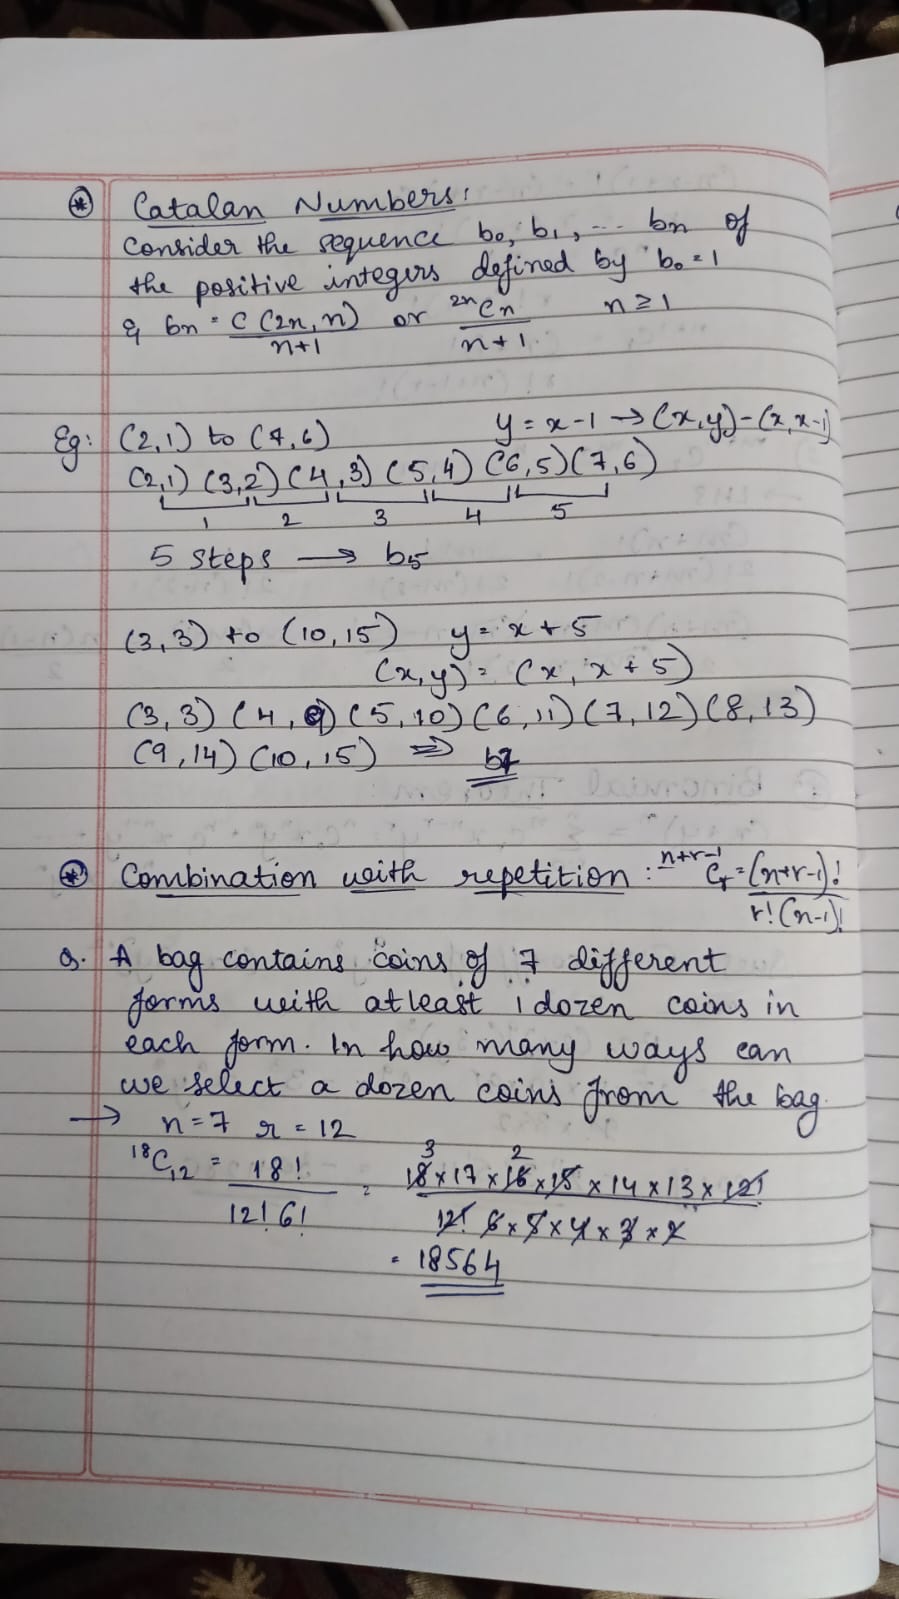 Catalan Numbers:
Consider the sequence b₀, b₁, ... bn of
the positive integers defined by b₀ = 1
& bn = C(2n, n)/n+1 or ²ⁿCn/n+1 n ≥ 1
Eg: (2,1) to (7,6) y = x-1 → (x,y)-(x,x-1)
(2,1) (3,2) (4,3) (5,4) (6,5) (7,6)
1 2 3 4 5
5 steps → b5
(3,3) to (10,15) y = x + 5
(x,y) = (x, x + 5)
(3,3) (4,9) (5,10) (6,11) (7,12) (8,13)
(9,14) (10,15) ⇒ b7
Combination with repetition :- ⁿ⁺ʳ⁻¹Cr = (n+r-1)!/r!(n-1)!
Q. A bag contains coins of 7 different
forms with atleast 1 dozen coins in
each form. In how many ways can
we select a dozen coins from the bag.
→ n=7 r = 12
¹⁸C₁₂ = 18!/12!6! = 18×17×16×15×14×13×12!/12! 6×5×4×3×2
3 2
= 18564